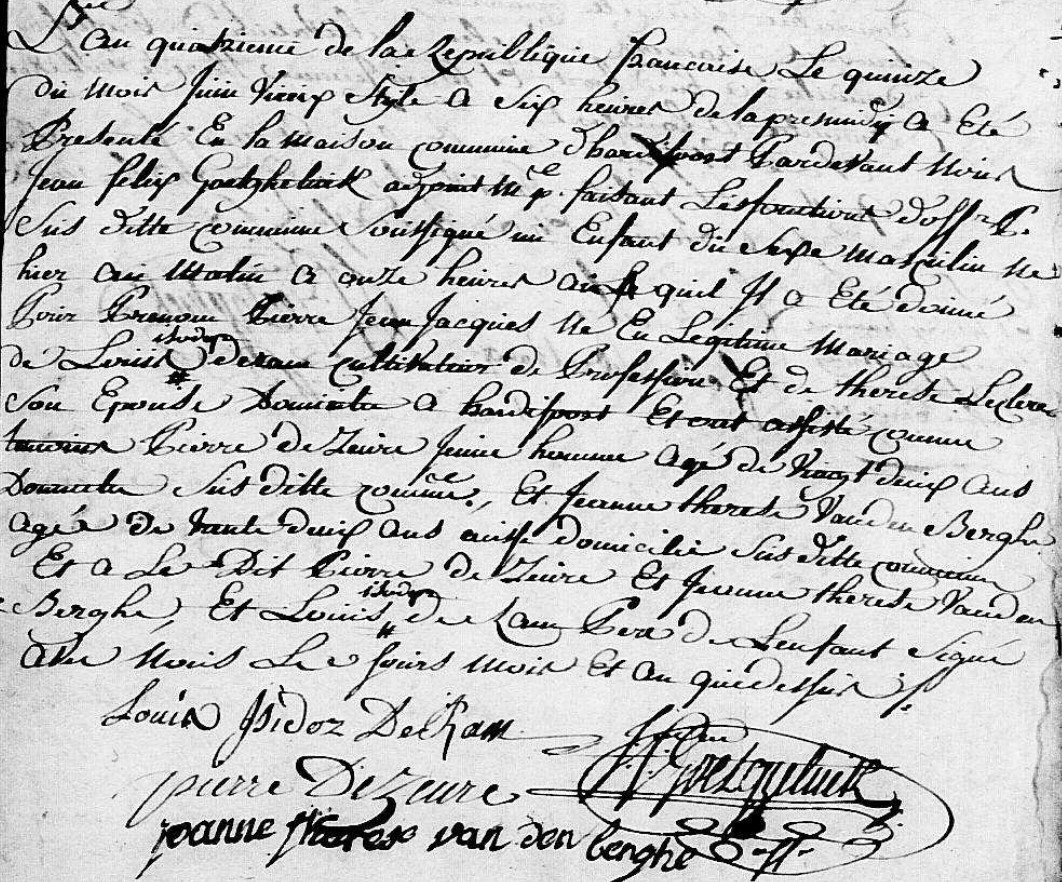 L'an quatrieme de la Republique francaise Le quinze
du mois Juin Vieux Style a Six heures de la presmidy a Eté
Presenté En la maison commune d'hardifort Pardevant Nous
Jean felix Goetgheluck adjoint M.e p. faisant Les fonctions d'off.r P.
Sus ditte commune Soussigné un Enfant du Sexe masculin ne
hier au matin a onze heures au quil Il a Eté donné
Pour Prenom Pierre Jean Jacques ne En Legitime mariage
isidore
de Louis deram cultivateur de Profession Et de therese Leclerc
Son Epouse Domicilie a hardifort Et ont assisté comme
temoins Pierre de Zeure Jeune homme agé de Vingt deux ans
Domicilie Sus ditte comme, Et Jeanne therese Vanden Berghe
agée de trante deux ans aussi domicilie Sus ditte commune
Et a Le Dit Pierre de Zeure Et Jeanne therese Vanden
isidore
Berghe, Et Louis de Ram Pere de Lenfant Signé
avec Nous Le Jours mois Et an que dessus
Louis Isidoz De Ram
J. F. Goetgheluck
pierre De Zeure
joanne theres van den berghe